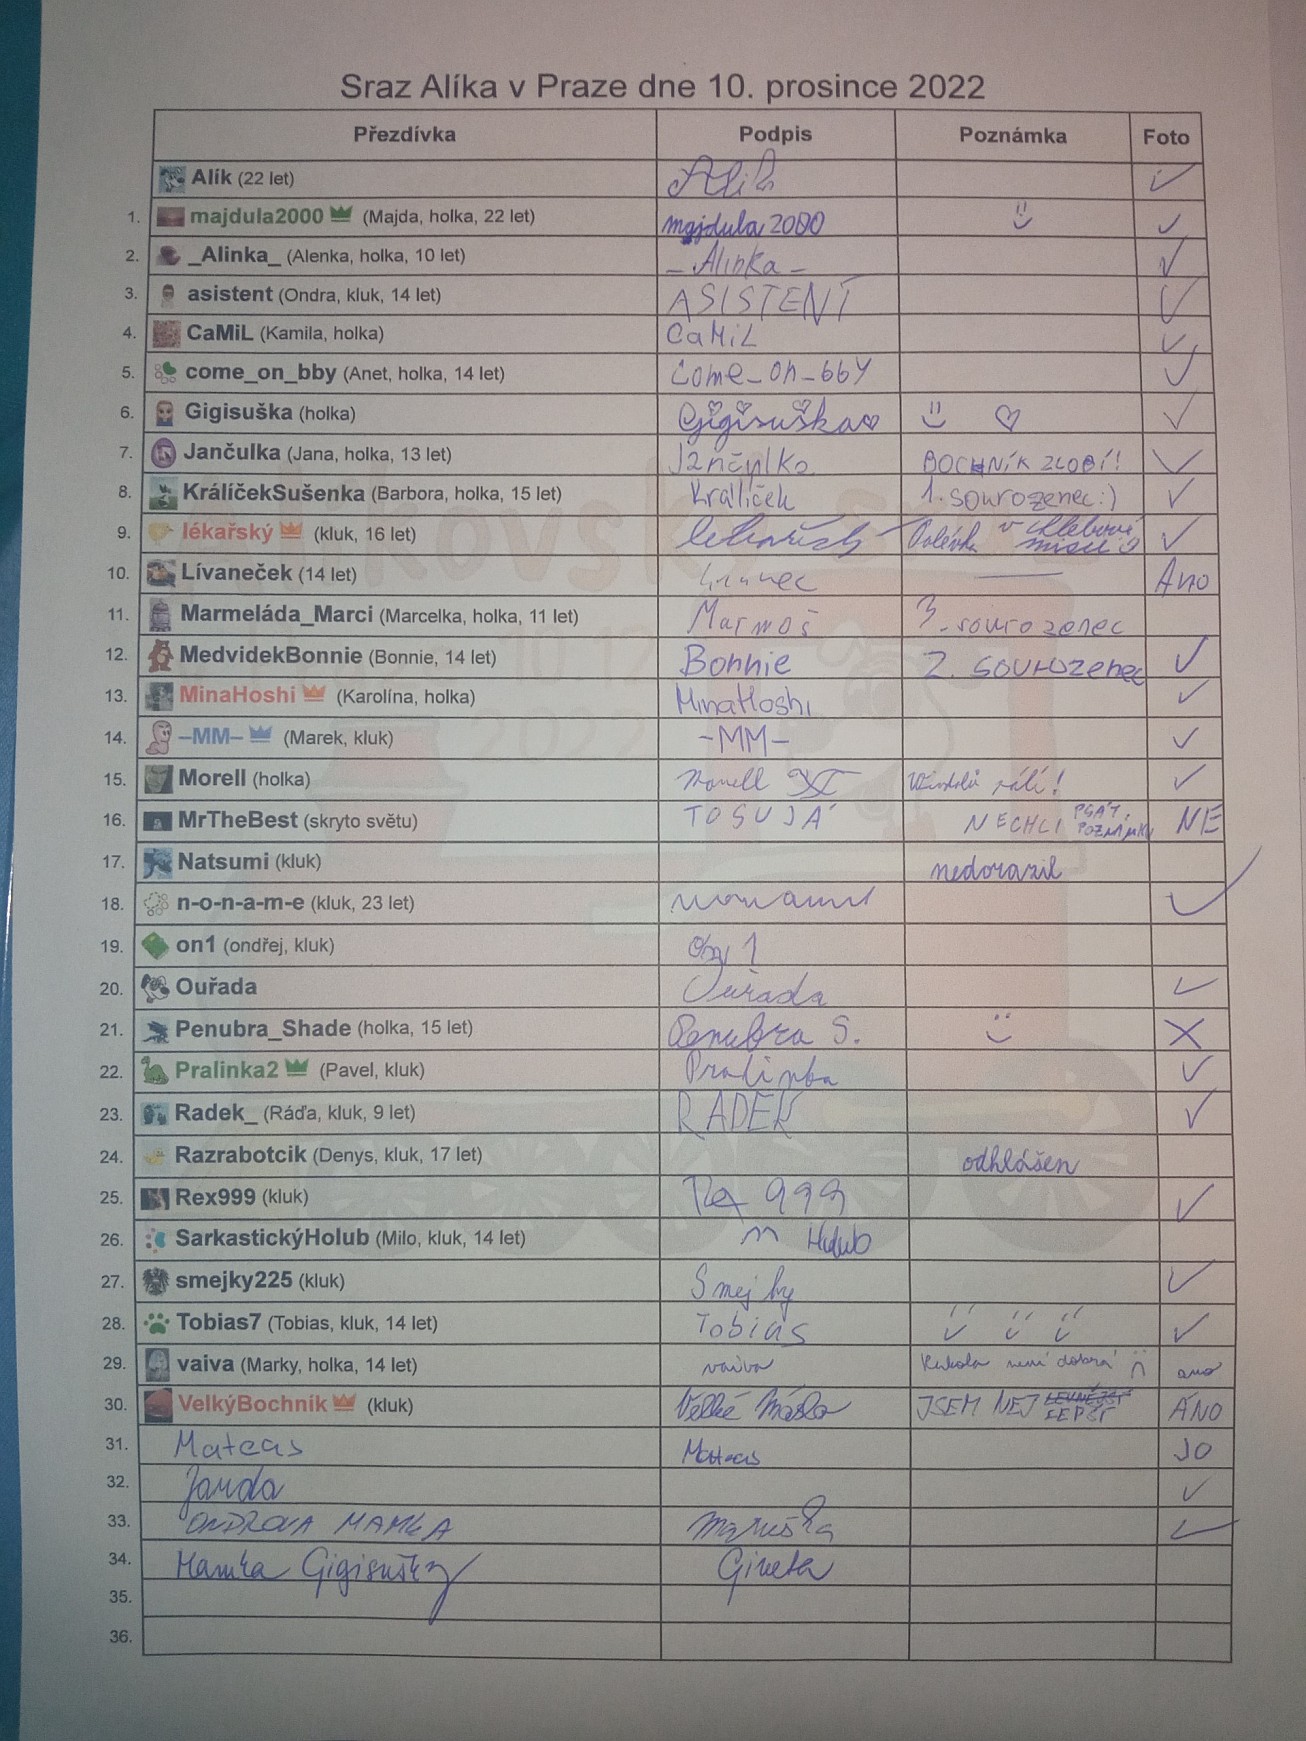 Sraz Alíka v Praze dne 10. prosince 2022
Přezdívka Podpis Poznámka Foto
Alík (22 let) Alík
1. majdula2000 (Majda, holka, 22 let) majdula2000
2. _Alinka_ (Alenka, holka, 10 let) _Alinka_
3. asistent (Ondra, kluk, 14 let) ASISTENT
4. CaMiL (Kamila, holka) CaMiL
5. come_on_bby (Anet, holka, 14 let) come_on_bby
6. Gigisuška (holka) Gigisuška
7. Jančulka (Jana, holka, 13 let) Jančulka BOCHNÍK ZLOBÍ!
8. KrálíčekSušenka (Barbora, holka, 15 let) Králíček 1. sourozenec :)
9. lékařský (kluk, 16 let) lékařský Polévka v chlebové misce
10. Lívaneček (14 let) Ano
11. Marmeláda_Marci (Marcelka, holka, 11 let) Marmoš 3. sourozenec
12. MedvidekBonnie (Bonnie, 14 let) Bonnie 2. sourozenec
13. MinaHoshi (Karolína, holka) MinaHoshi
14. –MM– (Marek, kluk) –MM–
15. Morell (holka) Morell
16. MrTheBest (skryto světu) TOSUJÁ NECHCI PSÁT POZNÁMKU NE
17. Natsumi (kluk) nedorazil
18. n-o-n-a-m-e (kluk, 23 let) noname
19. on1 (ondřej, kluk)
20. Ouřada Ouřada
21. Penubra_Shade (holka, 15 let) Penubra S. :)
22. Pralinka2 (Pavel, kluk) Pralinka
23. Radek_ (Ráďa, kluk, 9 let) RADEK
24. Razrabotcik (Denys, kluk, 17 let) odhlášen
25. Rex999 (kluk) Rex 999
26. SarkastickýHolub (Milo, kluk, 14 let) Holub
27. smejky225 (kluk) Smejky
28. Tobias7 (Tobias, kluk, 14 let) Tobias
29. vaiva (Marky, holka, 14 let) vaiva Kukola není dobrá ano
30. VelkýBochník (kluk) Velké Máslo JSEM NEJ LEPŠÍ ÁNO
31. Mateas Mateas JO
32. Janda
33. ONDROVA MAMKA Maruška
34. Mamka Gigisušky Gineta
35.
36.
Alíkovský sraz
10.12.
2022